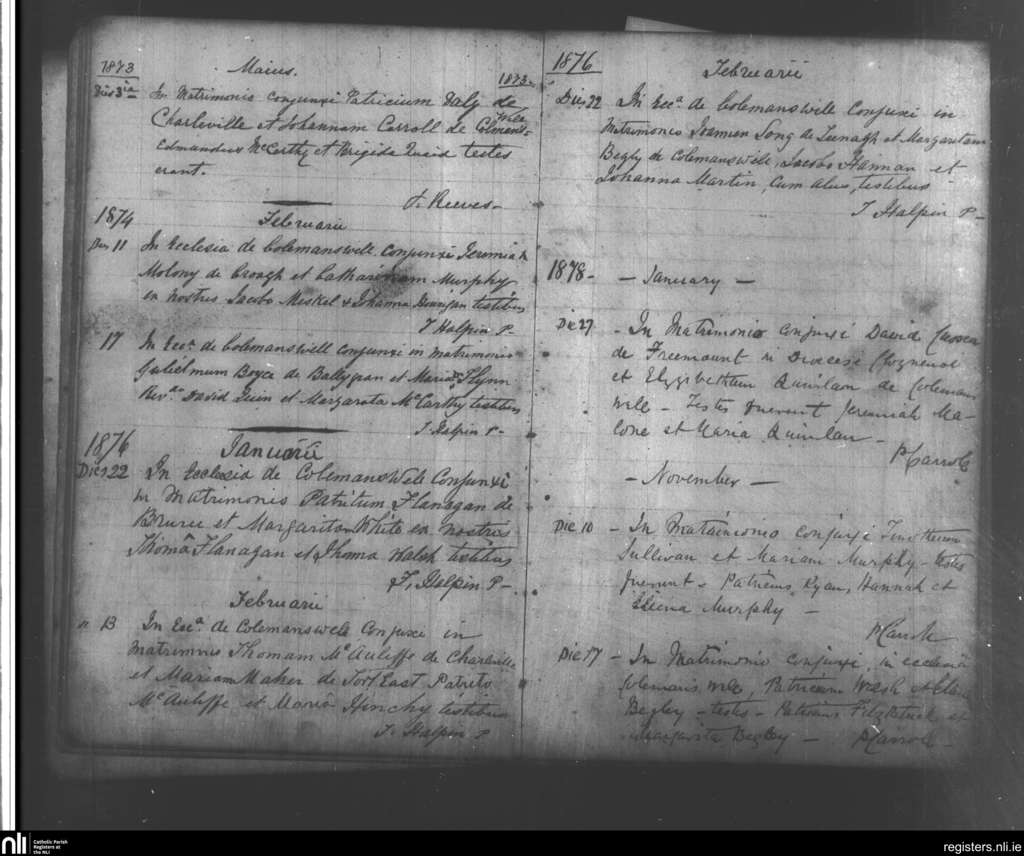 1873 Maius. 1873.
Dies 3ia In Matrimonio conjunxi Patricium Daly de
Charleville et Johannam Carroll de Colmans=
wells
Edmundus McCarthy et Brigida Quaid testes
erant.
J. Reeves
1874 Februarii
Dies 11 In Ecclesia de Colemanswell conjunxi Jeremiah
Molony de Croagh et Catharinam Murphy
ex nostris Jacobo Meskel & Johanna testibus
T Halpin P.
17 In Ecca. de Colemanswell conjunxi in matrimonio
Gulielmum Boyce de Ballygran et Mariam Flynn
Revdo. David Quin et Margarata McCarthy testibus
T Halpin P.
1876 Januarii
Dies 22 In Ecclesia de Colemanswell Conjunxi
in Matrimonio Patritum Flanagan de
Bruree et Margaritam White ex nostris
Thomâ Flanagan et Thoma Walsh testibus
T. Halpin P
Februarii
" 13 In Ecca. de Colemanswell Conjunxi in
matrimonio Thomam McAuliffe de Charleville
et Mariam Maher de Fort East Patrito
McAuliffe et Mariâ Hinchy testibus
T. Halpin P
1876 Februarii
Dies 22 In Ecca. de Colemanswell Conjunxi in
Matrimonio Long de et Margaritam
Begly de Colemanswell, Jacobo Hannan et
Johanna Martin, Cum aliis, testibus
T Halpin P
1878 - January -
Die 27 - In Matrimonio conjunxi David
de Freemount in Diocese
et Elizabetham Quinlan de Colemans
well - Testes fuerunt Jeremiah Ma-
lone et Maria Quinlan -
P Carroll
- November -
Die 10 - In Matrimonio conjunxi Timotheum
Sullivan et Mariam Murphy - testes
fuerunt - Patricius Ryan, Hannah et
Eliena Murphy -
P Carroll
Die 17 - In Matrimonio conjunxi, in ecclesia
Colemans well, Patricium Walsh et
Begley - testes - Patricius Fitzpatrick et
Margarita Begley - P Carroll -
nli Catholic Parish
Registers at
the NLI
registers.nli.ie